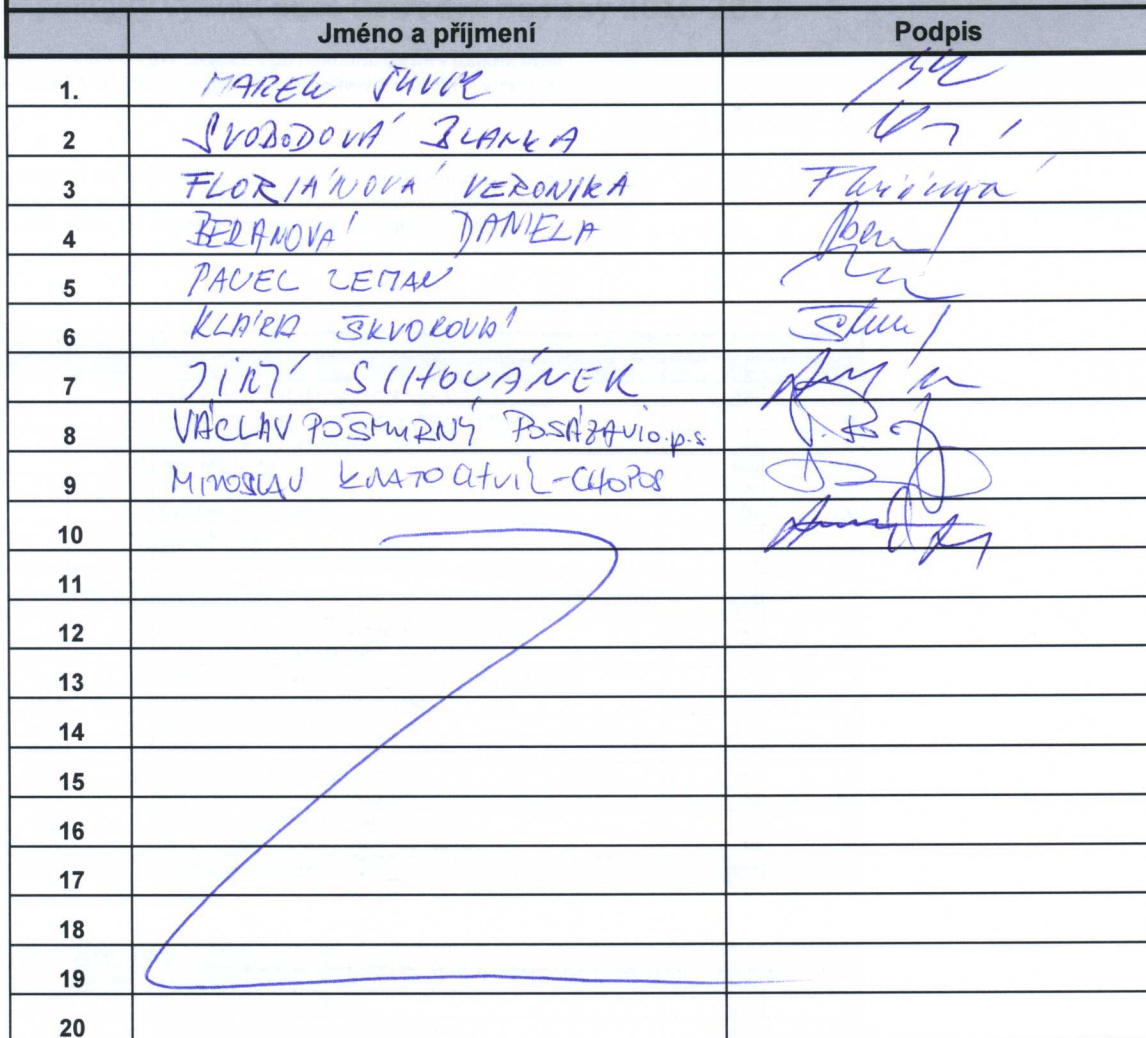 Jméno a příjmení Podpis
1. MAREK
2 SVOBODOVÁ BLANKA
3 FLORIÁNOVÁ VERONIKA
4 BERANOVÁ DANIELA
5 PAVEL ZEMAN
6 KLÁRA ŠKVOROVÁ
7 JIŘÍ SCHOVÁNEK
8 VÁCLAV POŠMURNÝ POSÁZAVÍ o.p.s.
9 MIROSLAV KRATOCHVÍL-CHOPOS
10
11
12
13
14
15
16
17
18
19
20